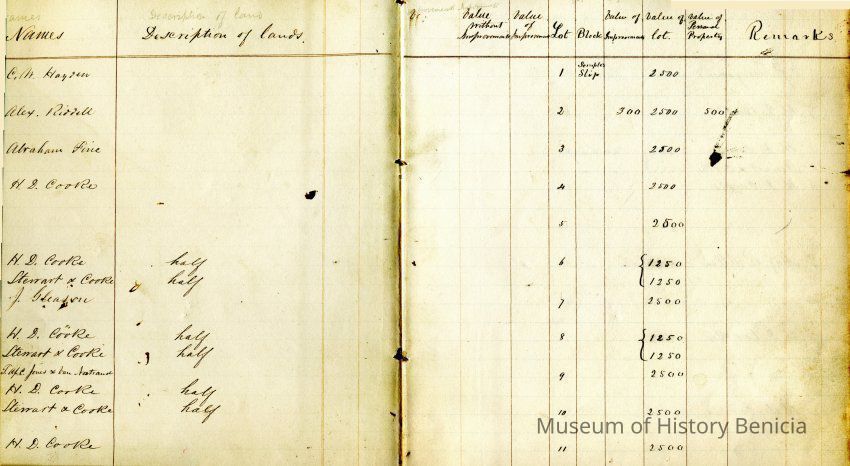 Names Description of lands. Value without Improvements Value of Improvements Lot Block Value of Improvements Value of lot. Value of Personal Property Remarks
C. W. Hayden 1 Slip 2500
Alex. Riddell 2 300 2500 500
Abraham Fine 3 2500
H. D. Cooke 4 2500
5 2500
H. D. Cooke half 6 1250
Stewart & Cooke half 1250
J. Gleason 7 2500
H. D. Cooke half 8 1250
Stewart & Cooke half 1250
Jones & Van Nostrand 9 2500
H. D. Cooke half
Stewart & Cooke half 10 2500
H. D. Cooke 11 2500
Museum of History Benicia